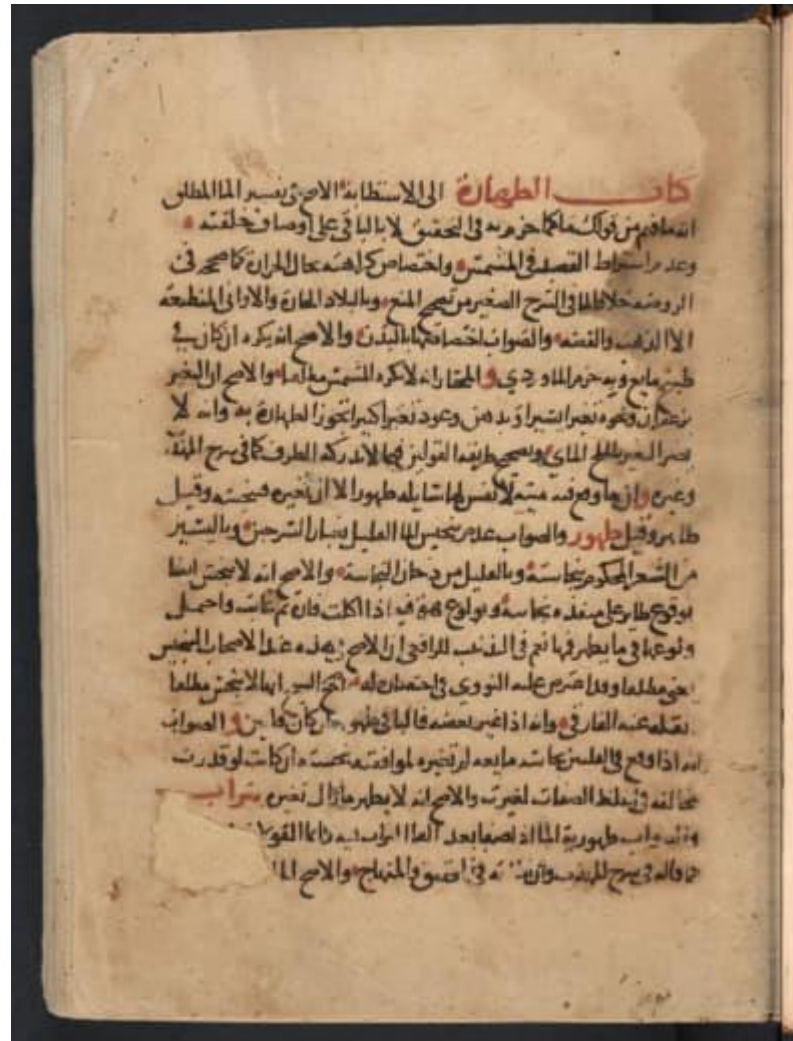 كتاب الطهارة الى الاستطابة الاصح في تفسير الما المطلق
انه ما فهم من قولك ما كما جزم به في التحقيق لا بالباقي على اوصاف خلقته
وعدم اشتراط القصد في المشمس واختصاص كراهته بحال الحرارة كما صحح في
الروضة خلافا لما في الشرح الصغير من تصحيح المنع وبالبلاد الحارة والاواني المنطبعة
الا الذهب والفضة والصواب اختصاصها بالبدن والاصح انه يكره ان كان في
طبخ مايع وبه جزم الماوردي والمختار انه لا يكره المشمس مطلقا والاصح ان المتغير
بزعفران ونحوه تغيرا يسيرا وبدهن وعود تغيرا كثيرا تجوز الطهارة به وانه لا
يضر التغير بالملح الماي وتصحيح طريقة القولين فيما لا يدركه الطرف كما في شرح المهذب
وغيره وان ما وقع فيه ميتة لا نفس لها سايلة طهور الا ان تغيره فينجسه وقيل
طاهر وقيل طهور والصواب عدم تنجيس الما القليل بغبار السرجين وباليسير
من الشعر المحكوم بنجاسته وبالقليل من دخان النجاسة والاصح انه لا ينجس ايضا
بوقوع طاير على منفذه نجاسة وبولوغ هرة اذا اكلت فان ثم غابت واحتمل
ولوغها في ما يطهر فمها نعم في التذنيب للرافعي ان الاصح في هذه عند الاصحاب التنجيس
يعني مطلقا وقد اعترض عليه النووي في اختصاره له انها لا تنجس مطلقا
نقله عنه الفارقي وانه اذا غير بعضه فالباقي طهور ان كان قلتين والصواب
انه اذا وقع في القلتين نجاسة مايعة لم تغيره لموافقته نجسته ان كانت لو قدرت
مخالفة في اغلظ الصفات لغيرت والاصح انه لا يطهر ما زال تغيره بتراب
طهورية الما اذا صفا بعد القا التراب فيه
كما قاله في شرح المهذب وان في التحقيق والمنهاج والاصح